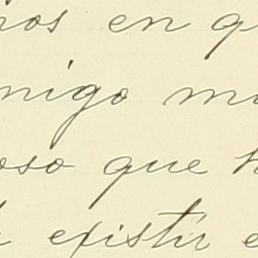 en q
migo m
oso que h
existir e